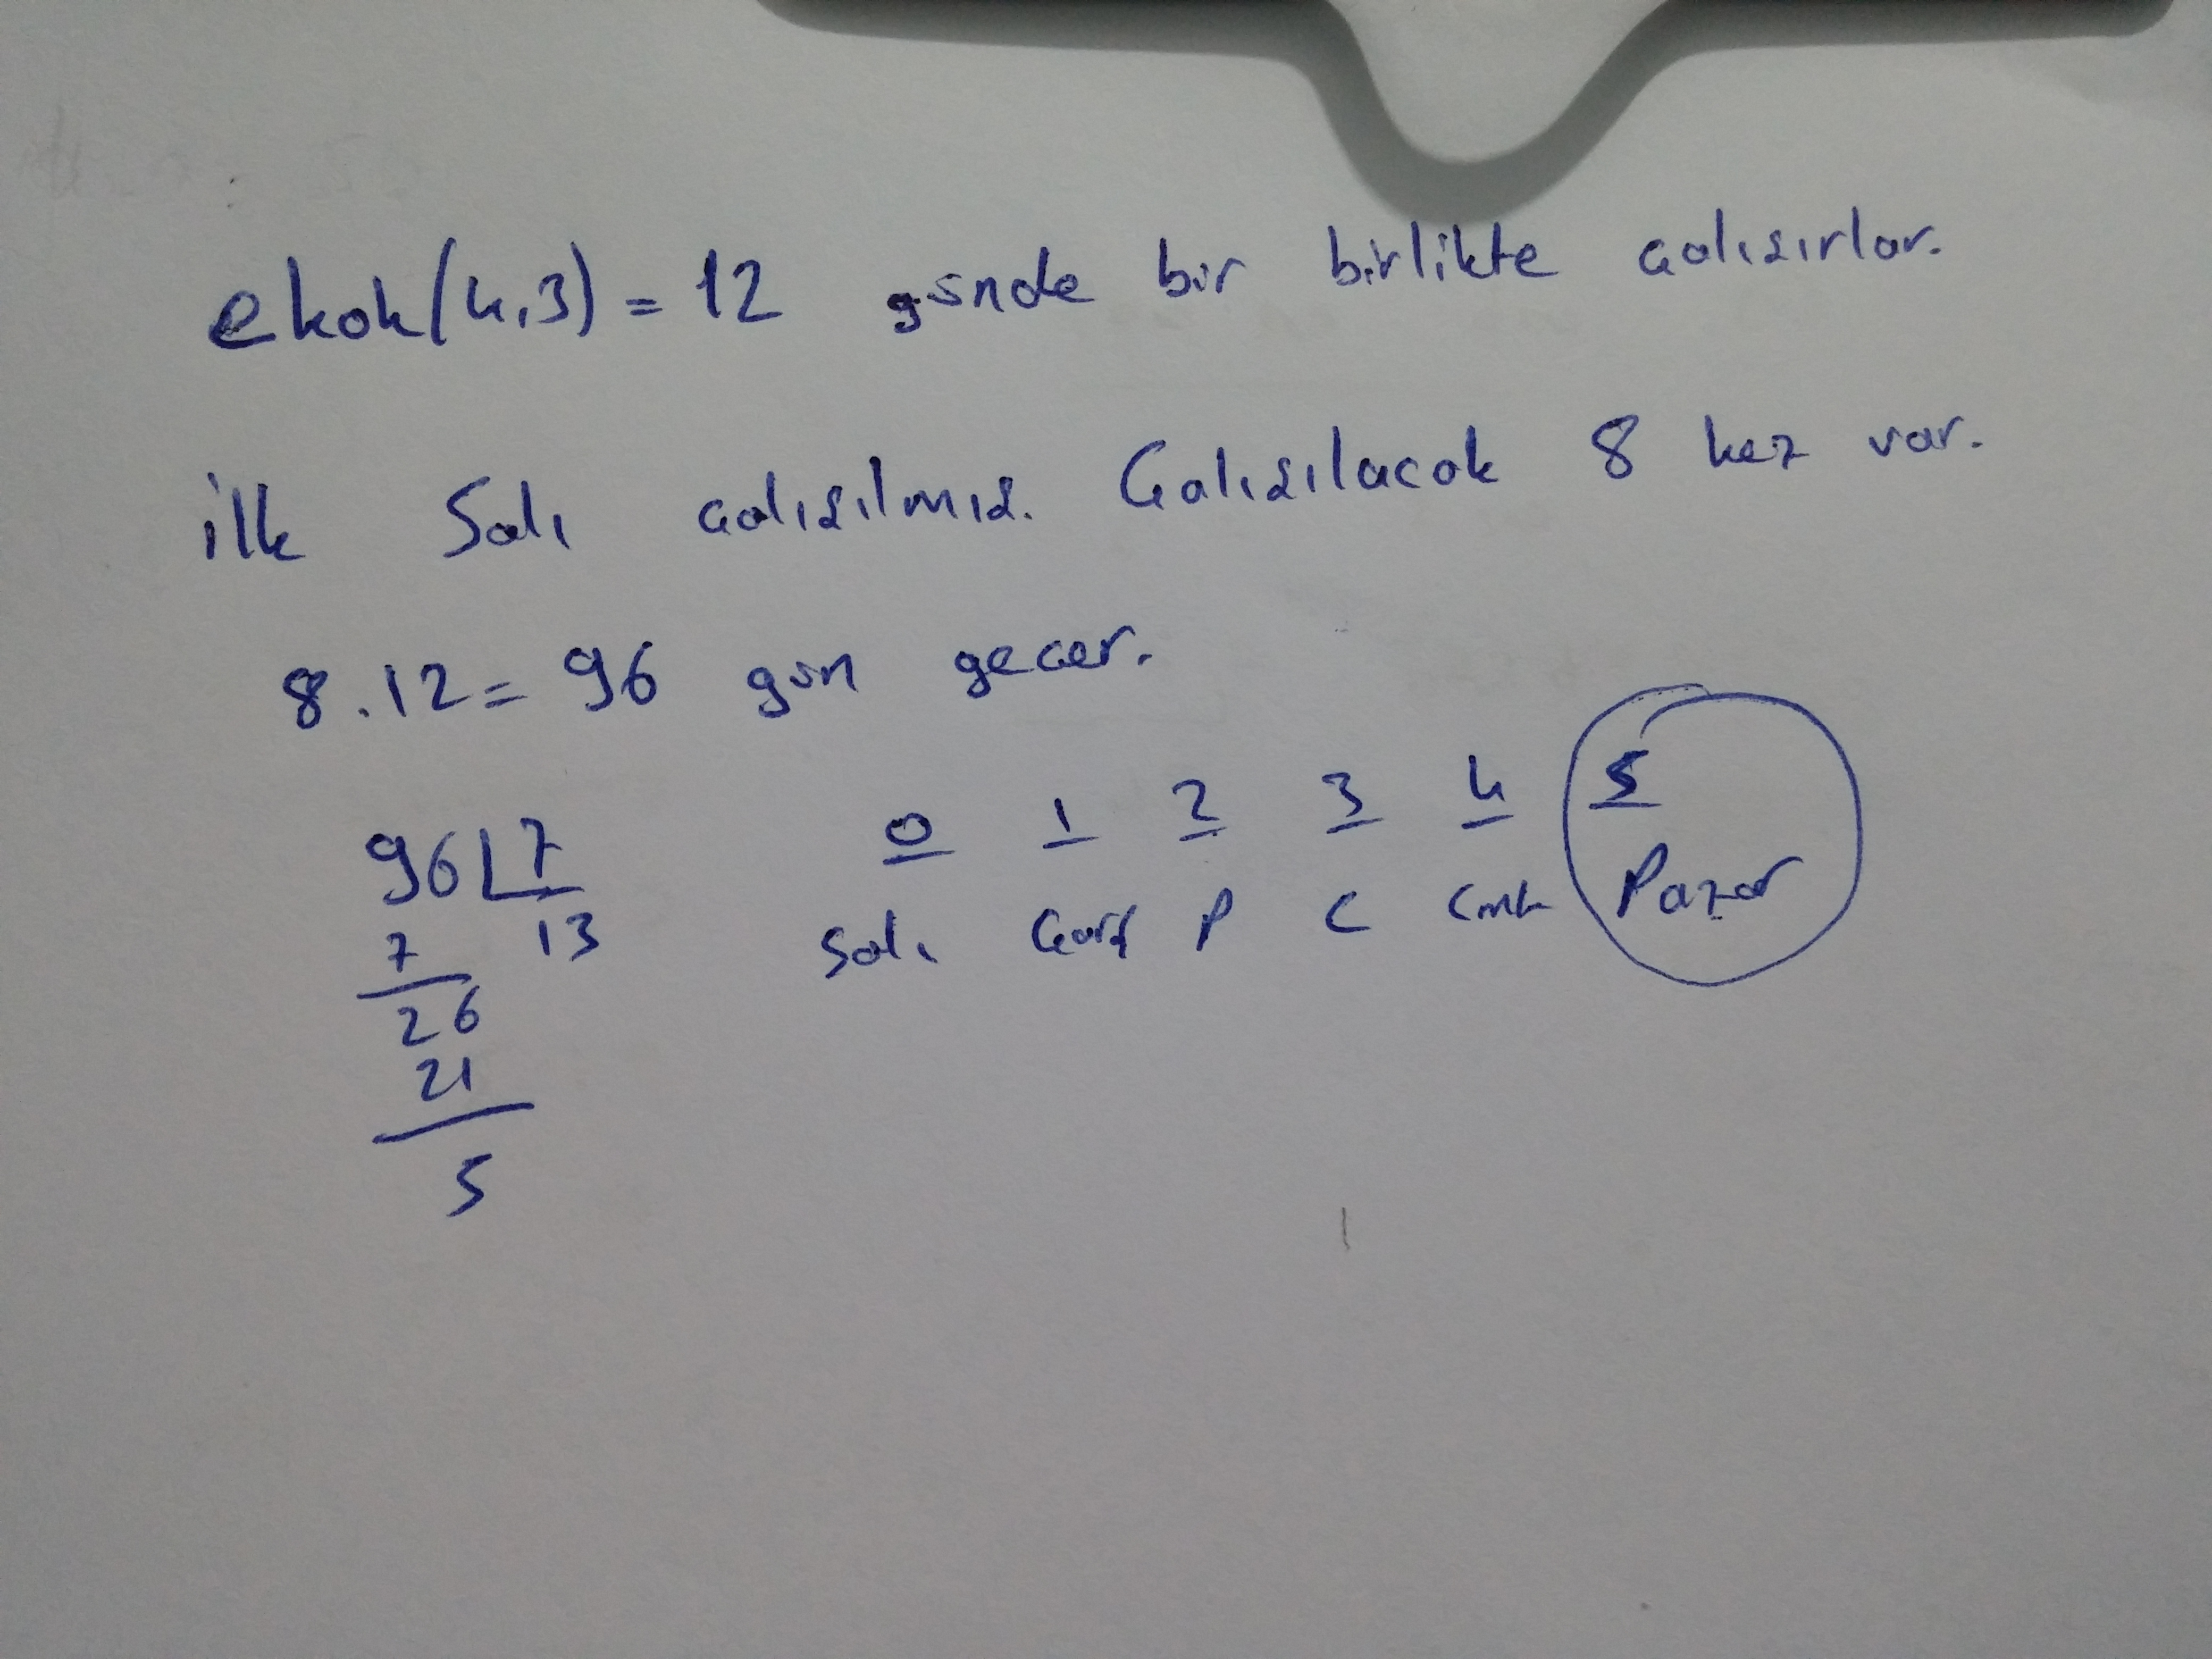 ekok(4,3) = 12 günde bir birlikte çalışırlar.
ilk Salı çalışılmış. Çalışılacak 8 kez var.
8.12 = 96 gün geçer.
0 1 2 3 4 5
96 7
Salı Çarş P C Cmt Pazar
13
7
26
21
5